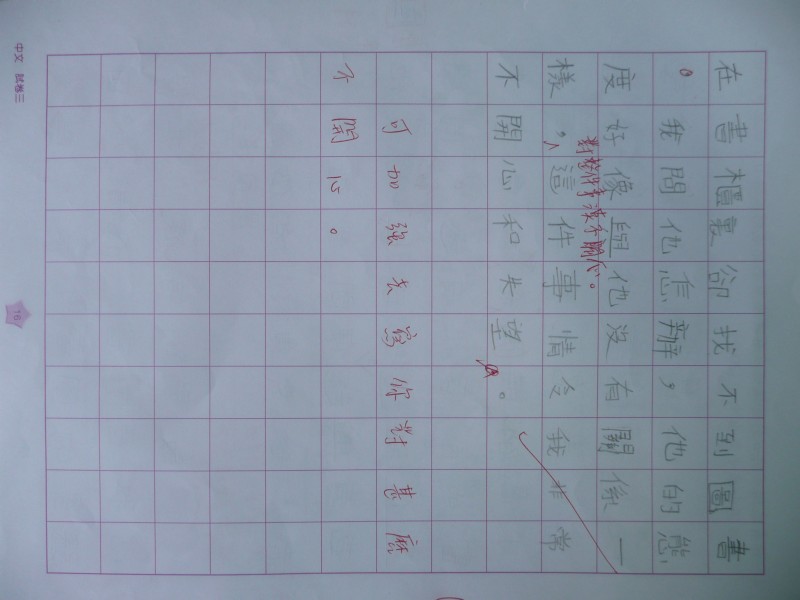 在書櫃裏卻找不到圖書
。我問他怎辦，他的態
度好像與他沒有關係一
對整件事漠不關心。
樣，這件事情令我非常
不開心和失望。
可加強去寫你對甚麼
不開心。
中文 試卷三
16